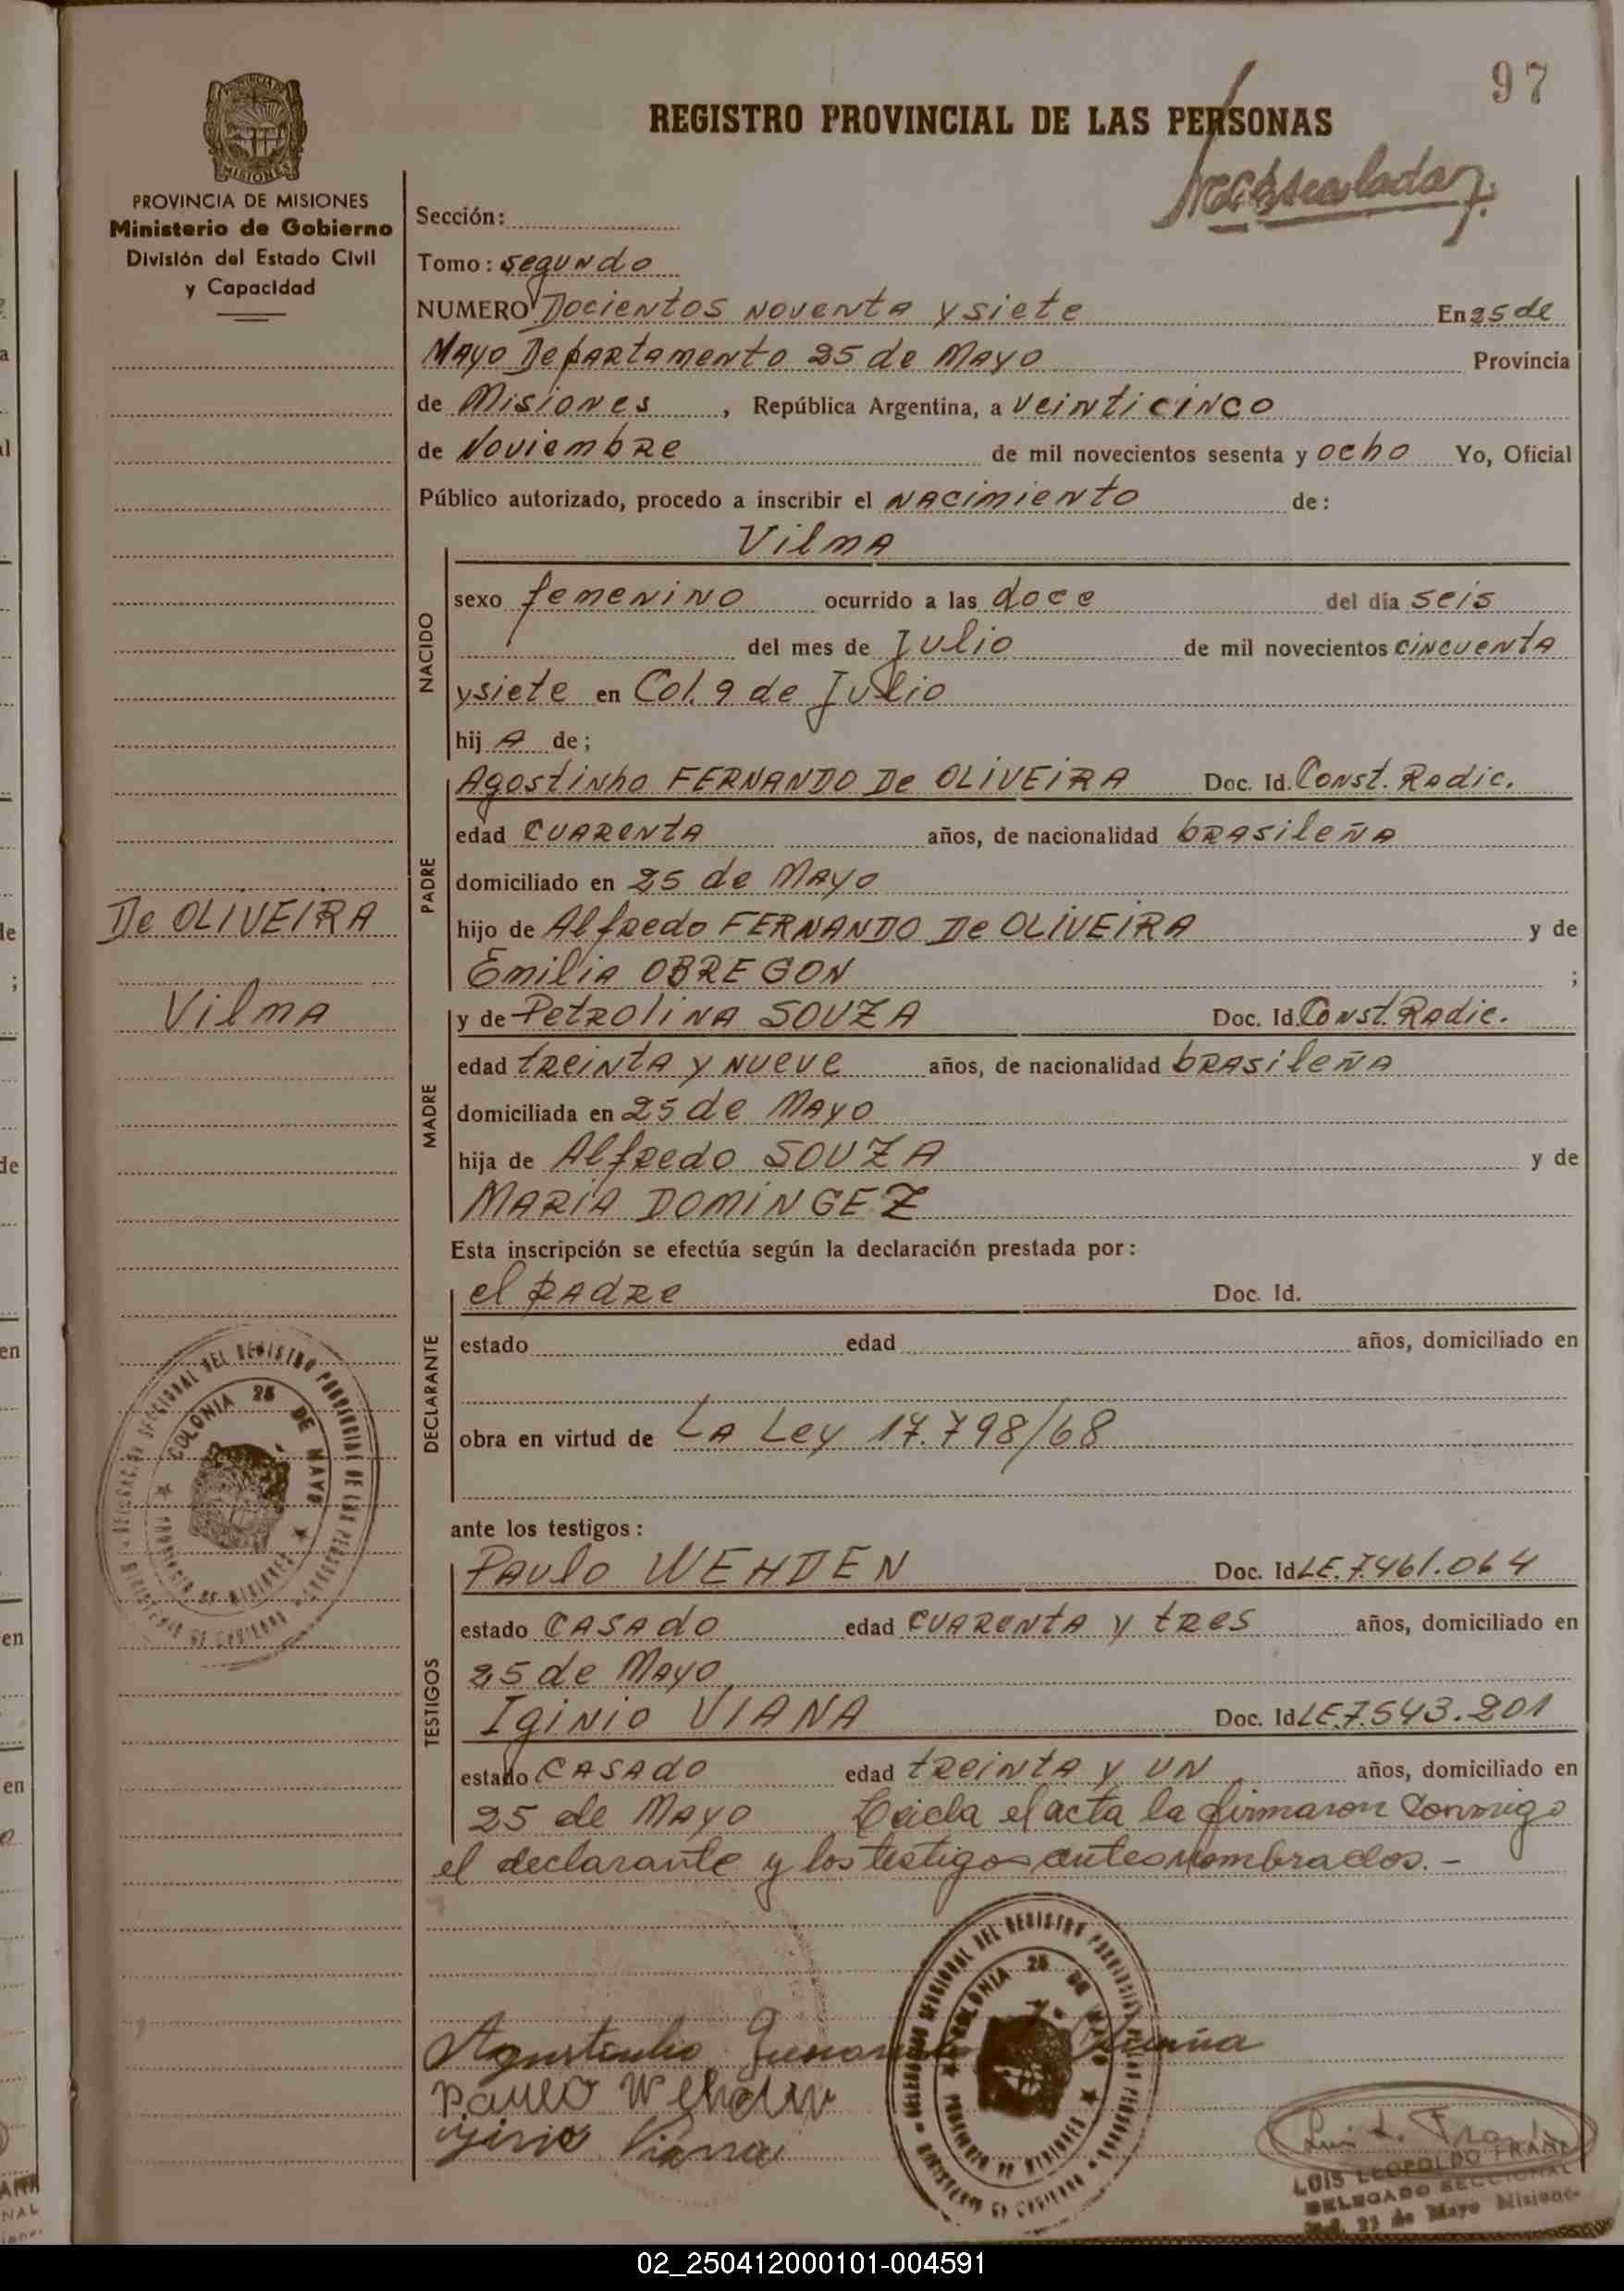 97
REGISTRO PROVINCIAL DE LAS PERSONAS
PROVINCIA DE MISIONES
Ministerio de Gobierno
División del Estado Civil
y Capacidad
Sección:
Tomo: segundo
NUMERO Docientos noventa y siete En 25 de
Mayo Departamento 25 de Mayo Provincia
de Misiones, República Argentina, a veinticinco
de Noviembre de mil novecientos sesenta y ocho Yo, Oficial
Público autorizado, procedo a inscribir el nacimiento de:
Vilma
NACIDO
sexo femenino ocurrido a las doce del día seis
del mes de Julio de mil novecientos cincuenta
y siete en Col. 9 de Julio
hij A de;
PADRE
Agostinho FERNANDO De OLIVEIRA Doc. Id. Const. Radic.
edad cuarenta años, de nacionalidad brasileña
domiciliado en 25 de Mayo
hijo de Alfredo FERNANDO De OLIVEIRA y de
Emilia OBREGON ;
De OLIVEIRA
Vilma
MADRE
y de Petrolina SOUZA Doc. Id. Const. Radic.
edad treinta y nueve años, de nacionalidad brasileña
domiciliada en 25 de Mayo
hija de Alfredo SOUZA y de
MARIA DOMINGEZ
Esta inscripción se efectúa según la declaración prestada por:
DECLARANTE
el padre Doc. Id.
estado edad años, domiciliado en
obra en virtud de La Ley 17.798/68
ante los testigos:
TESTIGOS
Paulo WEHDEN Doc. Id LE. 7.461.064
estado casado edad cuarenta y tres años, domiciliado en
25 de Mayo
Iginio VIANA Doc. Id LE. 7.543.201
estado casado edad treinta y un años, domiciliado en
25 de Mayo Leida el acta la firmaron conmigo
el declarante y los testigos antes nombrados.-
COLONIA 25 DE MAYO
PROVINCIA DE MISIONES
DELEGACION SECCIONAL DEL REGISTRO PROVINCIAL DE LAS PERSONAS
MINISTERIO DE GOBIERNO
COLONIA 25 DE MAYO
PROVINCIA DE MISIONES
Paulo Wehden
LUIS LEOPOLDO
DELEGADO SECCIONAL
25 de Mayo Misiones
02_250412000101-004591